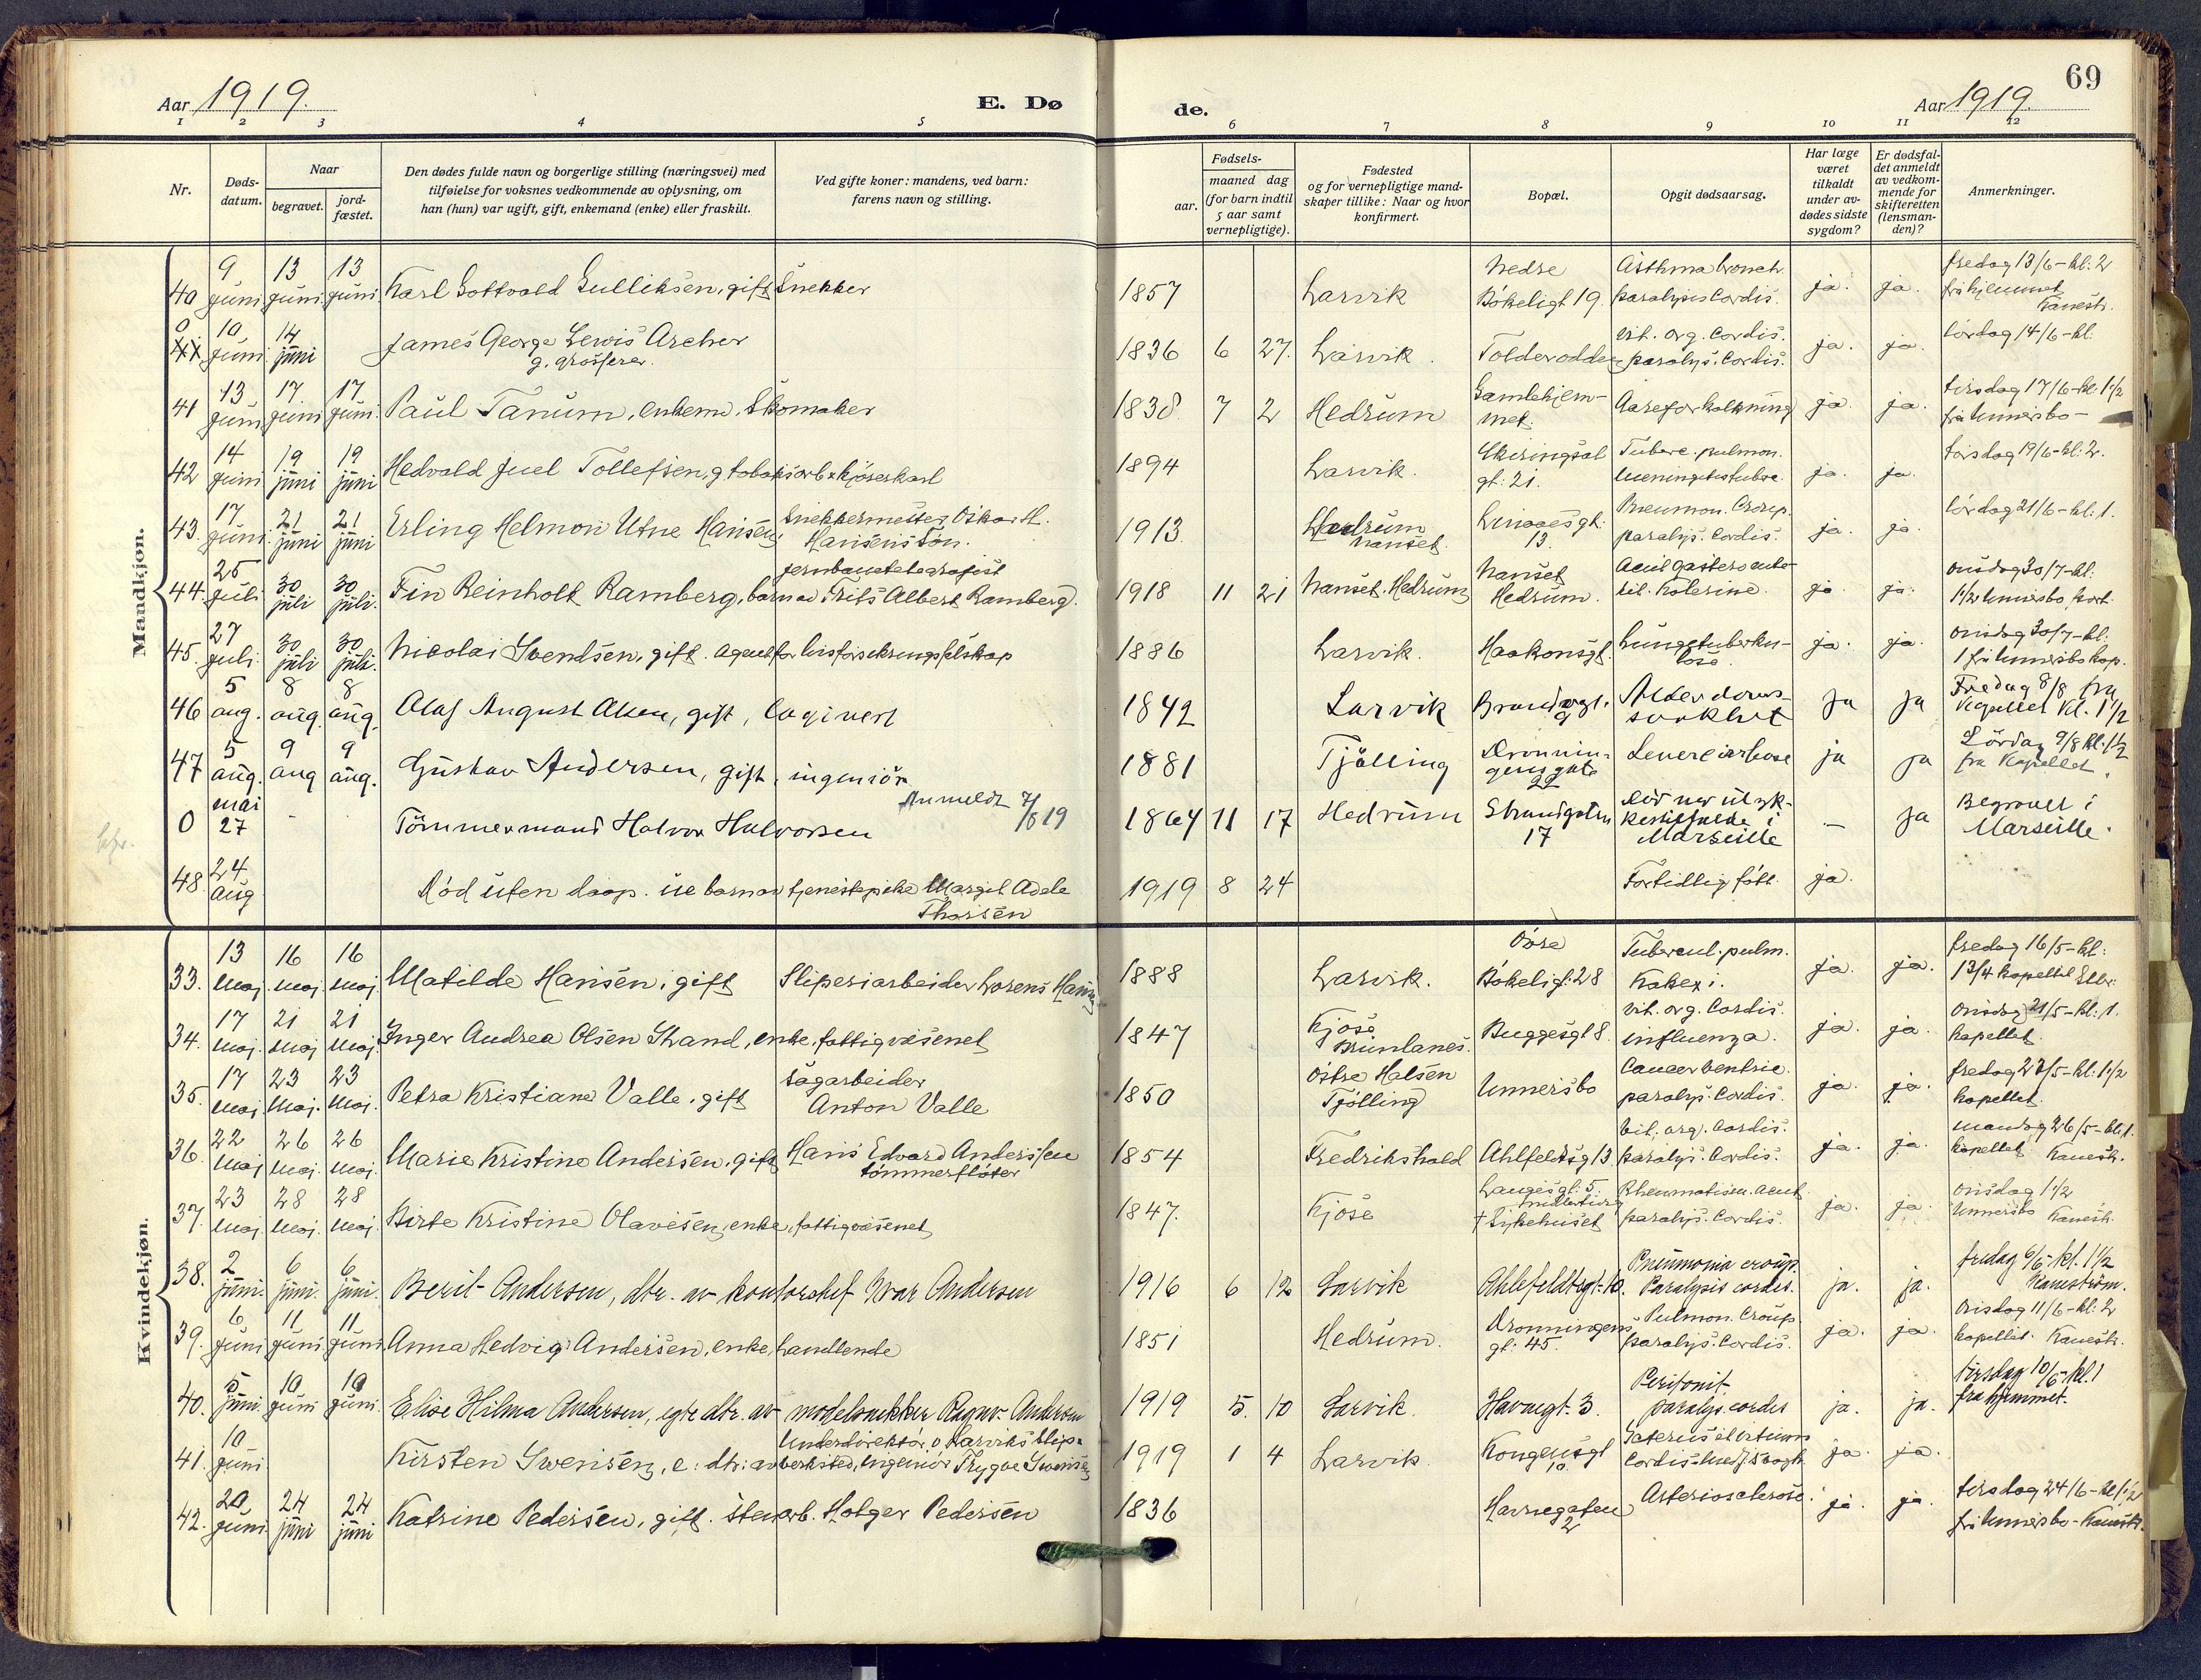 Aar 1919. E. Dø de. Aar 1919. 69
1 2 3 4 5 6 7 8 9 10 11 12
Nr.
Døds-
datum.
Naar
begravet.
jord-
fæstet.
Den dødes fulde navn og borgerlige stilling (næringsvei) med
tilføielse for voksnes vedkommende av oplysning, om
han (hun) var ugift, gift, enkemand (enke) eller fraskilt.
Ved gifte koner: mandens, ved barn:
farens navn og stilling.
Fødsels-
aar.
maaned dag
(for barn indtil
5 aar samt
vernepligtige).
Fødested
og for vernepligtige mand-
skaper tillike: Naar og hvor
konfirmert.
Bopæl.
Opgit dødsaarsag.
Har læge
været
tilkaldt
under av-
dødes sidste
sygdom?
Er dødsfal-
det anmeldt
av vedkom-
mende for
skifteretten
(lensman-
den)?
Anmerkninger.
Mandkjøn.
40 9 juni 13 juni 13 juni Karl Gottvald Gulliksen, gift Snekker 1857 Larvik Nedre Bökeligt 19. Asthma bronch. paralysis Cordis. ja. ja. fredag 13/6 - kl: 2 frå hjemmet Kanestr.
0 10 juni 14 juni James George Lewis Archer g. grosserer. 1836 6 27. Larvik. Tolderodden vit. org. Cordis. paralys. Cordis. ja. ja. lördag 14/6 - kl.
41 13 juni 17. juni 17 juni. Paul Tanum, enkem. Skomaker 1838 7 2 Hedrum Gamlehjem-met. Aareforkalkning ja. ja. tirsdag 17/6 - kl. 1 1/2 frå Unnersbo -
42 14 juni 19 juni 19 juni Hedvald Juel Tollefsen, g. tobaksarb. x kjöreskarl 1894 Larvik. Skiringsal gt: 21. Tuberc. pulmon. meningitis tuberc. ja. ja. torsdag 19/6 - kl: 2.
43. 17 juni. 21 juni 21 juni Erling Helmon Utne Hansen, Snekkermester Oskar H. Hansens Sön. 1913. Hedrum Nanset. Linaaesgt: 13. Pneumon. Croup. paralys. Cordis. ja. ja. lördag 21/6 - kl: 1.
44. 25 juli 30 juli 30 juli. Fin Reinholt Ramberg, barn av jernbanetelegrafist Frits Albert Ramberg. 1918 11 21 Nanset. Hedrum Nanset Hedrum. Acut gastero ente-rit. Kolerine. ja ja. onsdag 30/7 - kl: 1 1/2 Unnersbo
45. 27 juli. 30 juli 30 juli. Nicolai Svendsen, gift. Agent for livsforsikringsselskap 1886 Larvik. Haakonsgt. Lungetuberku-lose. ja. ja. onsdag 30/7 - kl: 1 frå Unnersbo kap.
46 5 aug. 8 aug. 8 aug. Olaf August Olsen, gift, logivert 1842 Larvik Brandvgt. 9 Alderdoms-svakhet ja ja Fredag 8/8 fra Kapellet kl. 1 1/2
47 5 aug. 9 aug 9 aug. Gustav Andersen, gift, ingeniör 1881 Tjölling Dronnin-gensgate 22 Levercirrhose ja ja Lördag 9/8 kl. 1 1/2 fra Kapellet.
0 mai 27 - Tömmermand Halvor Halvorsen Anmeldt 7/8 19 1864 11 17 Hedrum Strandgaten 17 Död ver ulyk-kestilfælde i Marseille — ja Begravet i Marseille.
48. 24 aug Död uten daap. ue barn av tjenestepike Margit Adele Thorsen 1919 8 24 For tidlig föt. ja.
Kvindekjøn.
33. 13 maj. 16 maj. 16 maj. Matilde Hansen, gift Sliperiarbeider Lorens Hansen 1888 Larvik. Övre Bökeligt: 28 Tubercul: pulm. Kakexi. ja. ja. fredag 16/5 - kl: 1 3/4 kapellet
34. 17 maj. 21 maj 21 maj. Inger Andrea Olsen Strand, enke, fattigvæsenet 1847 Kjose Brunlanes. Buggesgt 8. vit. org. Cordis. influenza. ja. ja. onsdag 21/5 - kl: 1. kapellet.
35. 17 maj. 23 maj. 23 maj. Petra Kristiane Valle, gift sagarbeider Anton Valle 1850 Östre Halsen Tjölling Unnersbo Cancer ventric. paralys. Cordis. ja. ja. fredag 23/5 - kl: 1 1/2 kapellet.
36. 22 maj 26 maj. 26 maj. Marie Kristine Andersen, gift Hans Edvard Anderssen tömmerflöter 1854 Fredrikshald Ahlfeldtsg 13. Vit. org. Cordis. paralys. Cordis. ja. ja. mandag 26/5 - kl: 1. kapellet Kanestr.
37. 23 maj. 28 maj. 28 maj. Birte Kristine Olavesen, enke, fattigvæsenet 1847. Kjose Langesgt: 5. midlertidig + Sykehuset Rheumatism. acut. paralys. Cordis. ja. ja. onsdag 1 1/2 Unnersbo Kanestr.
38. 2 juni. 6 juni. 6 juni. Berit Andersen, dtr. av kontorchef Ivar Andersen 1916 6 12 Larvik Ahlefeldtsgt: 10. Pneumonia croup. Paralysis cordis. ja. ja. fredag 6/6 - kl. 1 1/2 Kaneström.
39. 6 juni 11 juni. 11 juni. Anna Hedvig Andersen, enke, handlende 1851 Hedrum. Dronningens gt: 45. Pulmon. Croup. paralys. Cordis. ja. ja. onsdag 11/6 - kl: 2 kapellet. Kanestr.
40. 5 juni. 10 juni 10 juni. Elise Hilma Andersen, egte dtr. av modelsnekker Ragnv. Andersen 1919 5. 10 Larvik. Havnegt. 3. Peritonit. paralys. cordis ja. ja. tirsdag 10/6 - kl. 1 fra hjemmet.
41. 10 juni Kirsten Svensen, e: dtr: av Underdirektör v Larviks Slip- verksted, Ingeniör Trygve Svensen 1919 1 4 Larvik Kongensgt 10. Icterus et vitium Cordis ja ja.
42. 20 juni 24 juni 24 juni Katrine Pedersen, gift. stenarb. Holger Pedersen 1836 Havnegaten 2 Arteriosclerose. ja. ja. tirsdag 24/6 - kl 1 1/2 frå Unnersbo - Kanestr.